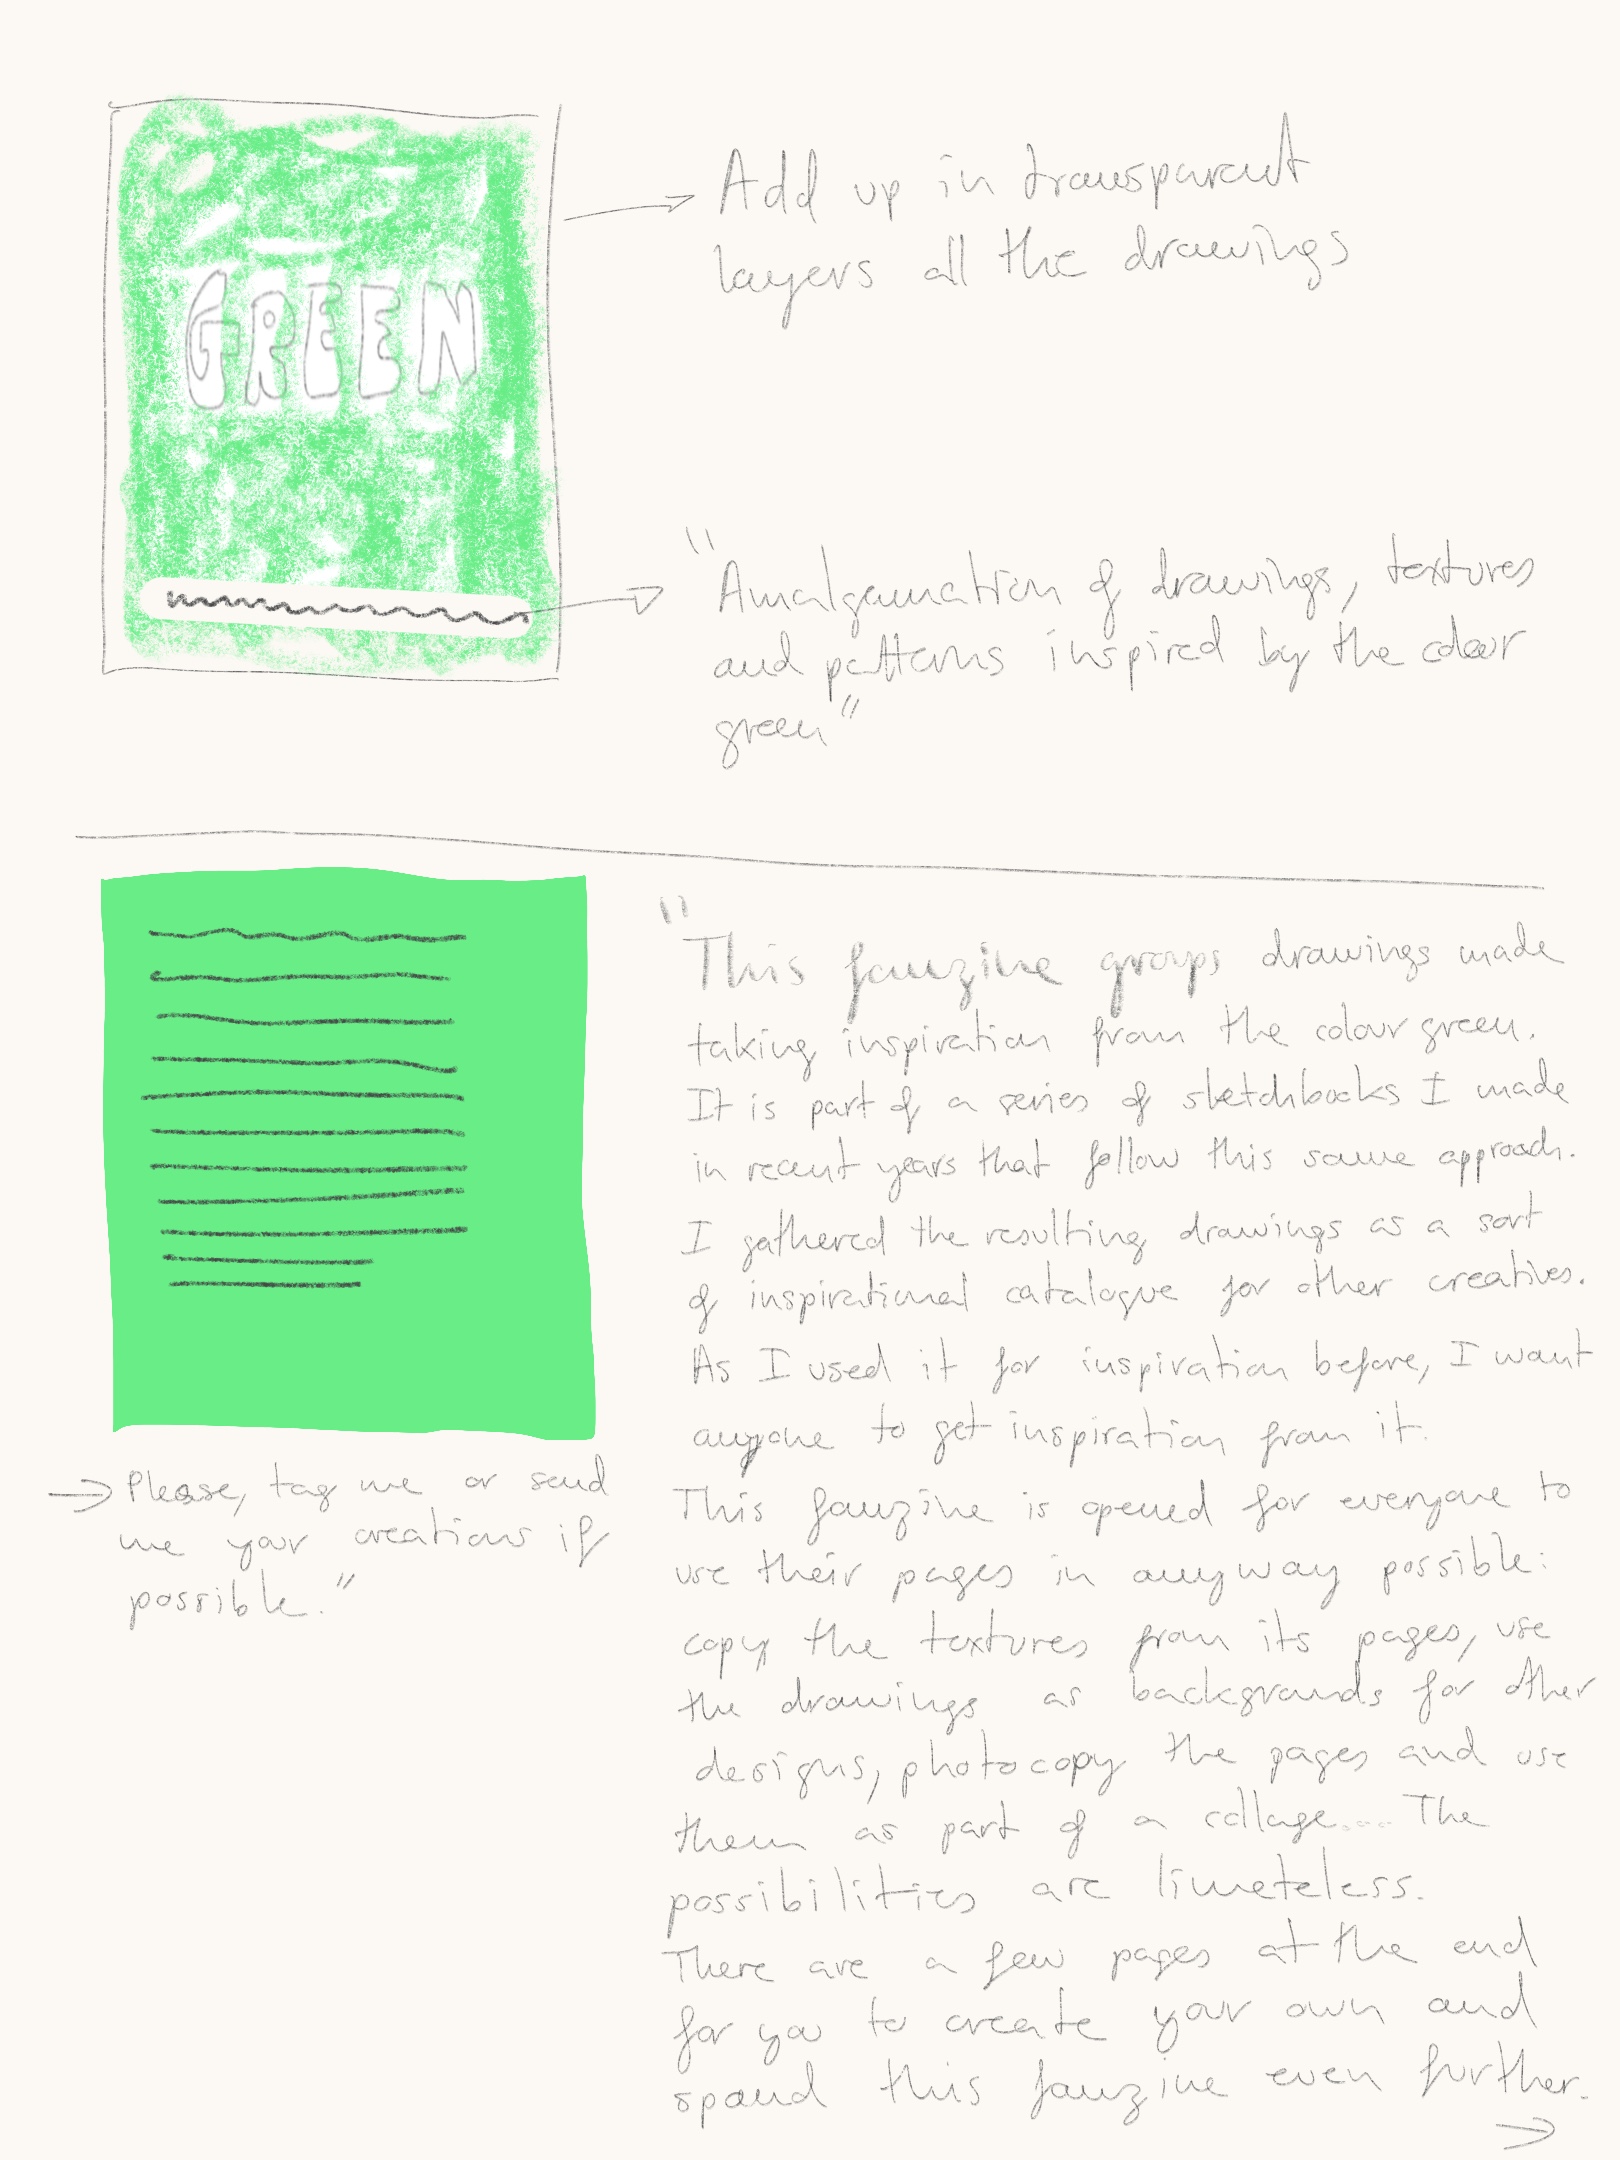 GREEN
Add up in transparent
layers all the drawings
"Amalgamation of drawings, textures
and patterns inspired by the colour
green"
"This fanzine groups drawings made
taking inspiration from the colour green.
It is part of a series of sketchbooks I made
in recent years that follow this same approach.
I gathered the resulting drawings as a sort
of inspirational catalogue for other creatives.
As I used it for inspiration before, I want
anyone to get inspiration from it.
This fanzine is opened for everyone to
use their pages in anyway possible:
copy the textures from its pages, use
the drawings as backgrounds for other
designs, photocopy the pages and use
them as part of a collage.... The
possibilities are limeteless.
There are a few pages at the end
for you to create your own and
spand this fanzine even further.
→
→ Please, tag me or send
me your creations if
possible."